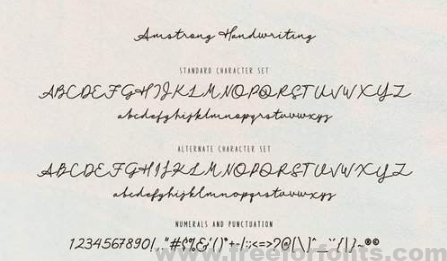 Amstrong Handwriting
STANDARD CHARACTER SET
ABCDEFGHIJKLMNOPQRSTUVWXYZ
abcdefghijklmnopqrstuvwxyz
ALTERNATE CHARACTER SET
ABCDEFGHIJKLMNOPQRSTUVWXYZ
abcdefghijklmnopqrstuvwxyz
NUMERALS AND PUNCTUATION
1234567890!,."#$%&'()*+-/:;<=>?@[\]^_`{|}~®©
www.freeforfonts.com